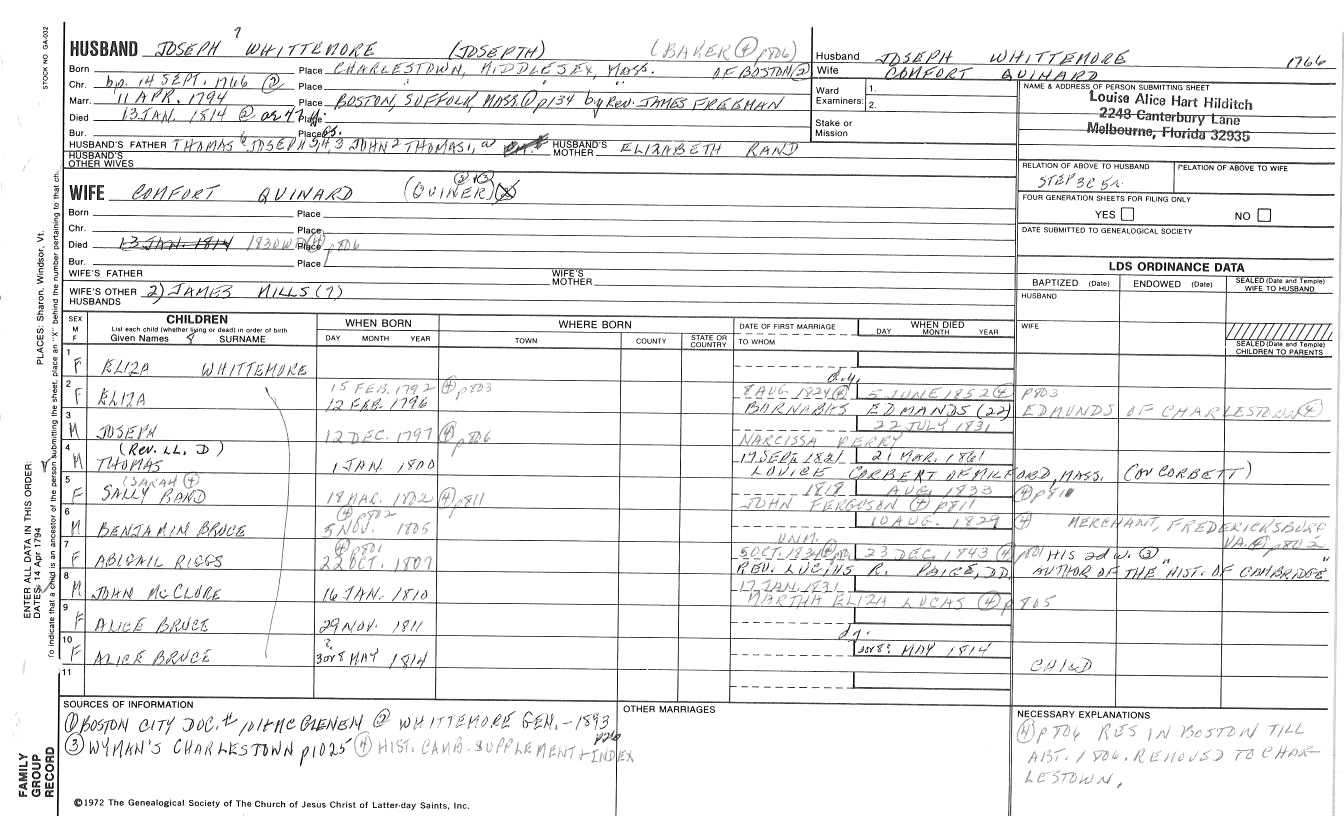 STOCK NO. GA-032
HUSBAND JOSEPH 7 WHITTEMORE (JOSEPTH) (BAKER ④ p806)
Born Place CHARLESTOWN, MIDDLESEX, MASS. OF BOSTON ②
Chr. bp. 14 SEPT. 1766 ② Place " " "
Marr. 11 APR. 1794 Place BOSTON, SUFFOLK, MASS ① p134 by Rev. JAMES FREEMAN
Died 13 JAN. 1814 ② Place
Bur. Place
HUSBAND'S FATHER THOMAS 6 JOSEPH 5, 4, 3 JOHN 2 THOMAS 1, HUSBAND'S MOTHER ELIZABETH RAND
HUSBAND'S OTHER WIVES
WIFE COMFORT QUINARD (QUINER)
Born Place
Chr. Place
Died 13 JAN. 1814 1830 Place p806
Bur. Place
WIFE'S FATHER WIFE'S MOTHER
WIFE'S OTHER HUSBANDS 2) JAMES MILLS (7)
Husband JOSEPH WHITTEMORE 1766
Wife COMFORT QUINARD
Ward Examiners: 1.
2.
Stake or Mission
NAME & ADDRESS OF PERSON SUBMITTING SHEET
Louise Alice Hart Hilditch
2248 Canterbury Lane
Melbourne, Florida 32935
RELATION OF ABOVE TO HUSBAND RELATION OF ABOVE TO WIFE
STEP 3C 5R
FOUR GENERATION SHEETS FOR FILING ONLY
YES NO
DATE SUBMITTED TO GENEALOGICAL SOCIETY
LDS ORDINANCE DATA
BAPTIZED (Date) ENDOWED (Date) SEALED (Date and Temple) WIFE TO HUSBAND
HUSBAND
WIFE
SEALED (Date and Temple) CHILDREN TO PARENTS
SEX M F CHILDREN List each child (whether living or dead) in order of birth Given Names 8 SURNAME
WHEN BORN DAY MONTH YEAR
WHERE BORN TOWN COUNTY STATE OR COUNTRY
DATE OF FIRST MARRIAGE TO WHOM
WHEN DIED DAY MONTH YEAR
1 F ELIZA WHITTEMORE
d.y.
2 F ELIZA 15 FEB. 1792 ④ p803 12 FEB. 1796 8 AUG 1824 ② 5 JUNE 1852 ④ p803
BARNABAS EDMANDS (22) EDMUNDS OF CHARLESTOWN ④
3 M JOSEPH 12 DEC. 1797 ④ p806 22 JULY 1831
NARCISSA PERRY
4 M (Rev. LL. D) THOMAS 1 JAN. 1800 17 SEPT 1821 21 MAR. 1861
LOVICE CORBERT OF MILFORD, MASS. (OR CORBETT)
5 F (SARAH ④) SALLY RAND 18 MAR. 1802 ④ p811 1818 AUG. 1833 ④ p811
JOHN FERGUSON ④ p811
6 M BENJAMIN BRUCE ④ p802 5 NOV. 1805 10 AUG. 1829 ④ MERCHANT, FREDERICKSBURG VA. ④ p802
UNM.
7 F ABIGAIL RIGGS ④ p801 22 OCT. 1807 5 OCT. 1834 23 DEC. 1843 ④ p801 HIS 2d w. ③
REV. LUCIUS R. PAIGE, DD. AUTHOR OF THE "HIST. OF CAMBRIDGE"
8 M JOHN McCLURE 16 JAN. 1810 17 JAN. 1831
MARTHA ELIZA LUCAS ④ p805
9 F ALICE BRUCE 29 NOV. 1811
dy.
10 F ALICE BRUCE ? 3 or 8 MAY 1814 3 or 8? MAY 1814 CHILD
11
SOURCES OF INFORMATION
① BOSTON CITY DOC. # 101 McGLENEN ② WHITTEMORE GEN. - 1893 p26
③ WYMAN'S CHARLESTOWN p1025 ④ HIST. CAMB. SUPPLEMENT + INDEX
OTHER MARRIAGES
NECESSARY EXPLANATIONS
④ p806 RES IN BOSTON TILL
ABT. 1806. REMOVED TO CHAR-
LESTOWN.
©1972 The Genealogical Society of The Church of Jesus Christ of Latter-day Saints, Inc.
FAMILY GROUP RECORD
ENTER ALL DATA IN THIS ORDER:
DATES: 14 Apr 1794
PLACES: Sharon, Windsor, Vt.
To indicate that a child is an ancestor of the person submitting the sheet, place an "X" behind the number pertaining to that child.